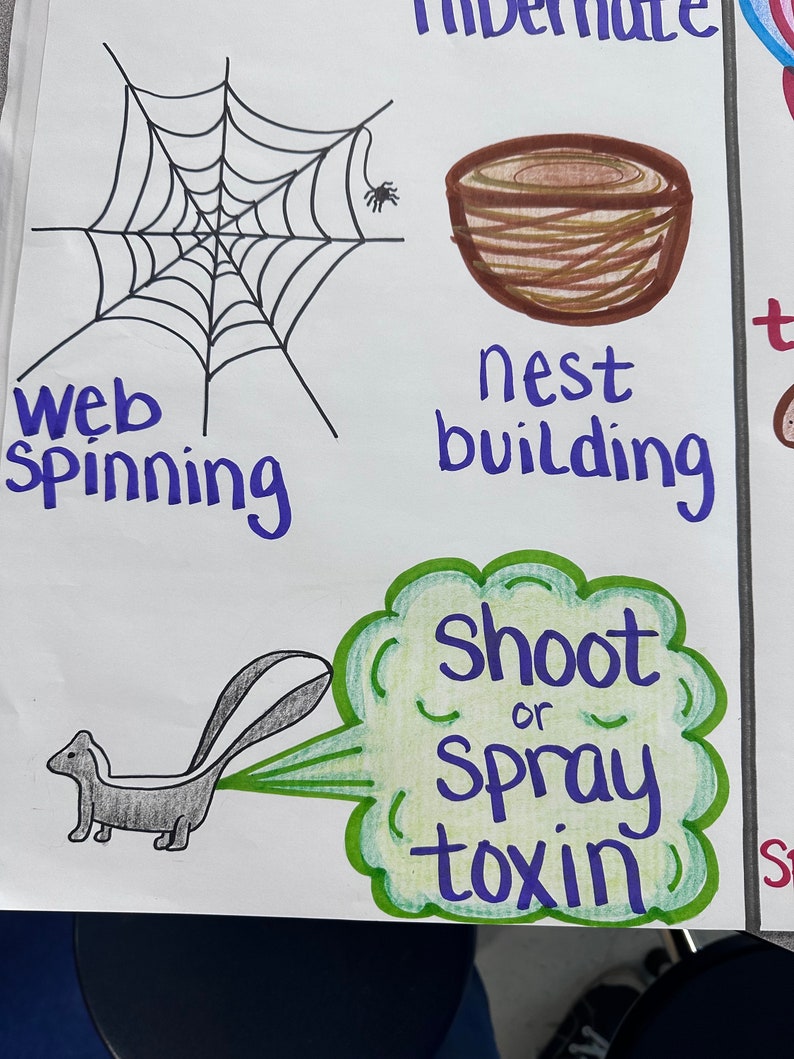 Hibernate
web
spinning
nest
building
shoot
or
spray
toxin